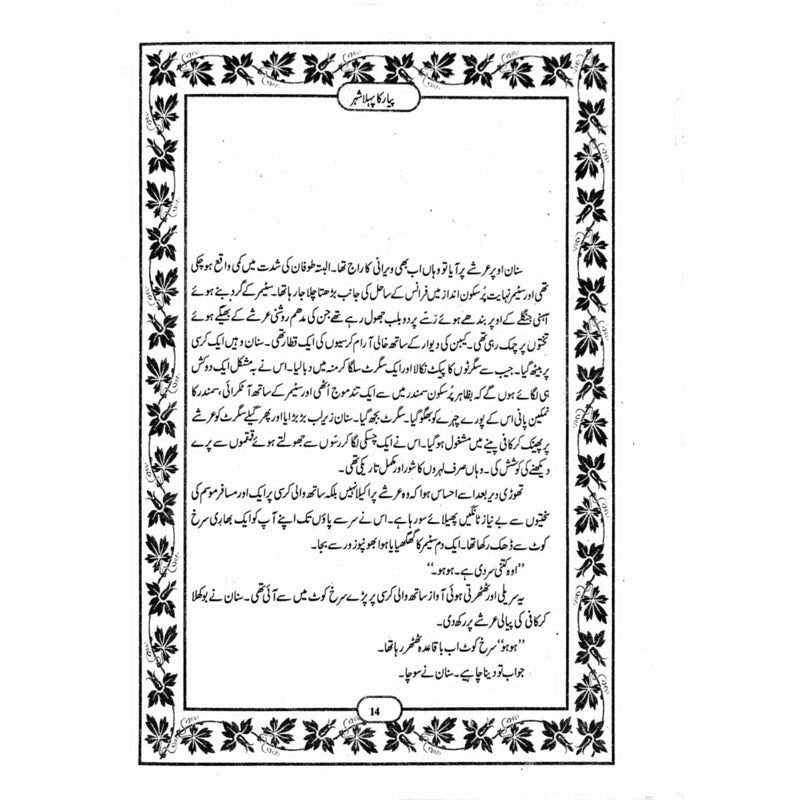 پیار کا پہلا شہر
سنان اوپر عرشے پر آیا تو وہاں اب بھی ویرانی کا راج تھا۔ البتہ طوفان کی شدت میں کمی واقع ہو چکی
تھی اور سٹیمر نہایت پُرسکون انداز میں فرانس کے ساحل کی جانب بڑھتا چلا جا رہا تھا۔ سٹیمر کے گرد بنے ہوئے
آہنی جنگلے کے اوپر بندھے ہوئے رسّے پر دو بلب جھول رہے تھے جن کی مدھم روشنی عرشے کے بھیگے ہوئے
تختوں پر چمک رہی تھی۔ کیبن کی دیوار کے ساتھ خالی آرام کرسیوں کی ایک قطار تھی۔ سنان وہیں ایک کرسی
پر بیٹھ گیا۔ جیب سے سگرٹوں کا پیکٹ نکالا اور ایک سگرٹ سلگا کر منہ میں دبا لیا۔ اس نے بہ مشکل ایک دو کش
ہی لگائے ہوں گے کہ بظاہر پُرسکون سمندر میں سے ایک تند موج اُٹھی اور سٹیمر کے ساتھ آ ٹکرائی، سمندر کا
نمکین پانی اس کے پورے چہرے کو بھگو گیا۔ سگرٹ بجھ گیا۔ سنان زیرِلب بڑبڑایا اور پھر گیلے سگرٹ کو عرشے
پر پھینک کر کافی پینے میں مشغول ہو گیا۔ اس نے ایک چسکی لگا کر رسّوں سے جھولتے ہوئے قمقموں سے پرے
دیکھنے کی کوشش کی۔ وہاں صرف لہروں کا شور اور مکمل تاریکی تھی۔
تھوڑی دیر بعد اسے احساس ہوا کہ وہ عرشے پر اکیلا نہیں بلکہ ساتھ والی کرسی پر ایک اور مسافر موسم کی
سختیوں سے بے نیاز ٹانگیں پھیلائے سو رہا ہے۔ اس نے سر سے پاؤں تک اپنے آپ کو ایک بھاری سرخ
کوٹ سے ڈھک رکھا تھا۔ ایک دم سٹیمر کا گھگھیایا ہوا بھونپو زور سے بجا۔
’’اوہ کتنی سردی ہے۔ ہو ہو۔‘‘
یہ سریلی اور ٹھٹھرتی ہوئی آواز ساتھ والی کرسی پر پڑے سرخ کوٹ میں سے آئی تھی۔ سنان نے بوکھلا
کر کافی کی پیالی عرشے پر رکھ دی۔
’’ہو ہو‘‘ سرخ کوٹ اب باقاعدہ ٹھٹھر رہا تھا۔
جواب تو دینا چاہیے۔ سنان نے سوچا۔
14